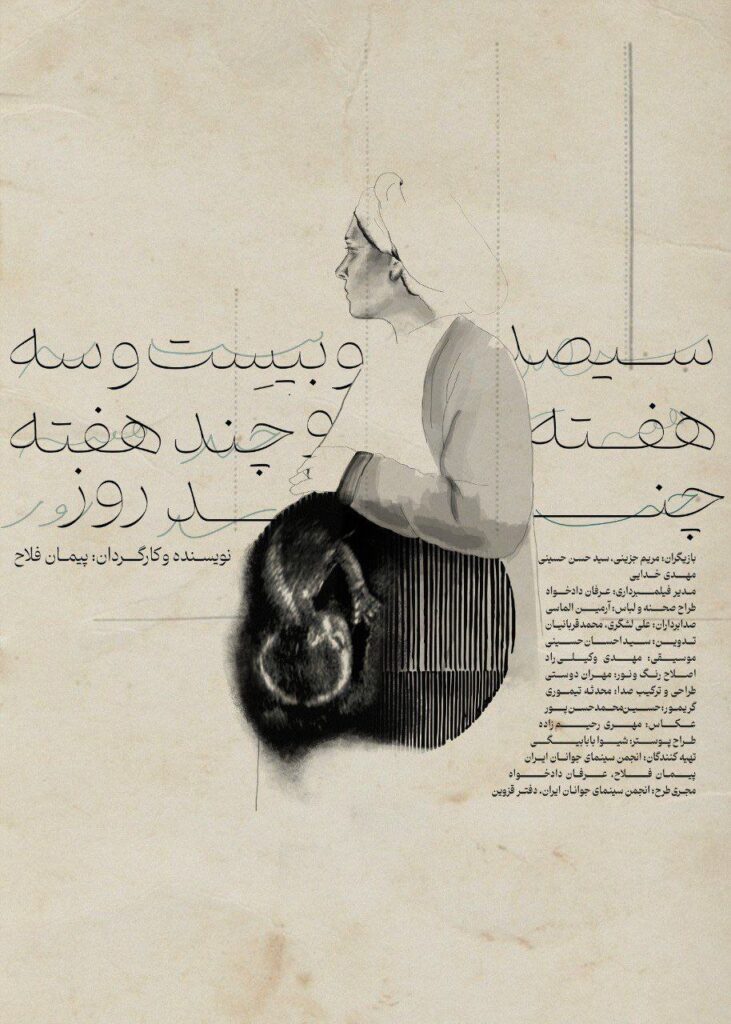 سیصد و بیست و سه
هفته و چند هفته
چند روز
نویسنده و کارگردان: پیمان فلاح
بازیگران: مریم جزینی، سید حسن حسینی
مهدی خدایی
مدیر فیلمبرداری: عرفان دادخواه
طراح صحنه و لباس: آرمین الماسی
صدابرداران: علی لشگری، محمد قربانیان
تدوین: سید احسان حسینی
موسیقی: مهدی وکیلی راد
اصلاح رنگ و نور: مهران دوستی
طراحی و ترکیب صدا: محدثه تیموری
گریمور: حسین محمدحسن پور
عکاس: مهری رحیم زاده
طراح پوستر: شیوا بابابیگی
تهیه کنندگان: انجمن سینمای جوانان ایران
پیمان فلاح، عرفان دادخواه
مجری طرح: انجمن سینمای جوانان ایران، دفتر قزوین